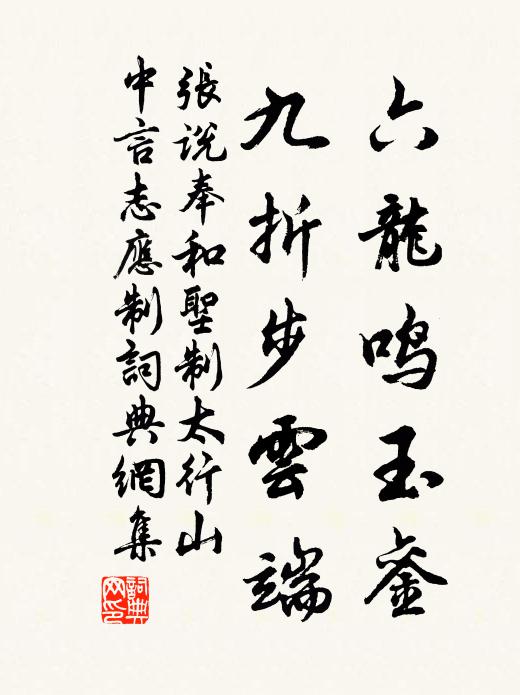 六龍鳴玉銮
九折步雲端
張说奉和聖制太行山
中言志應制詞典網集
詞典网印